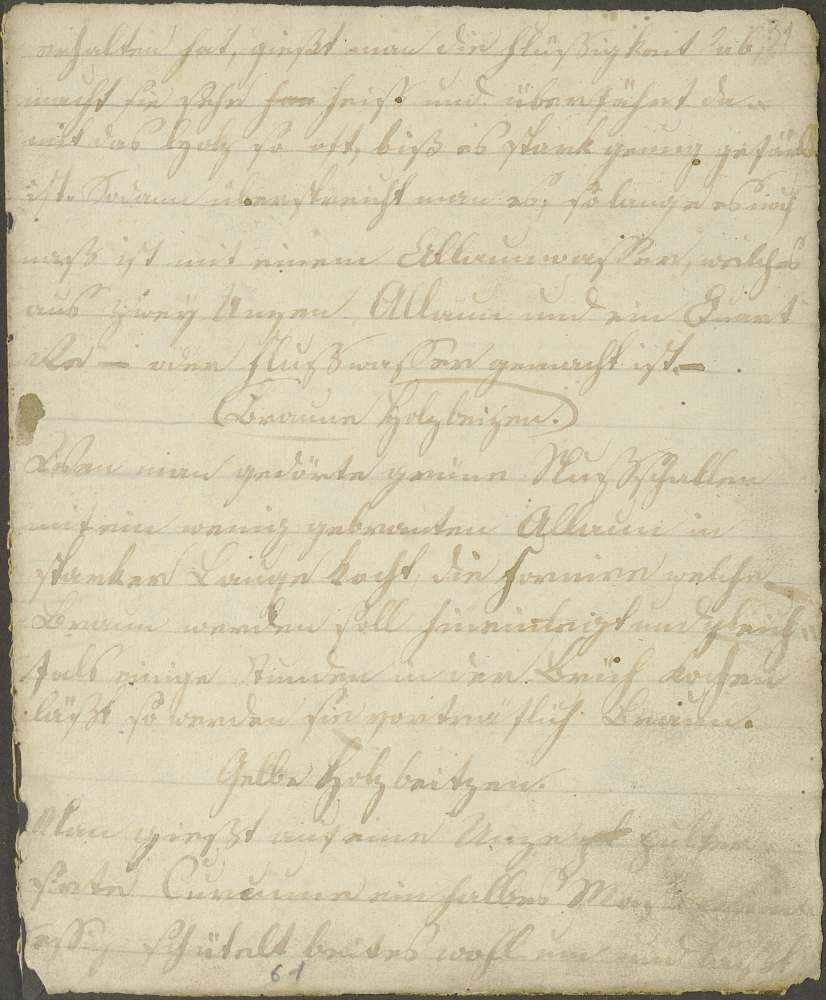 erhalten hat, gießt man die Flüssigkeit ab,
macht sie sehr heiss und überfährt da-
mit das Holz so oft, biß es stark genug gefär
ist. Sodann überstreicht man es, so lange es noch
naß ist mit einem Allaunwasser, welches
aus zwey Unzen Allaun und ein Quart
Re — oder Flußwasser gemacht ist. —
Braune Holzbeizen.
Wen man gedörte grüne Nußschallen
mit ein wenig gebranten Allaun in
starker Lauge kocht die Fornire welche
Braun werden soll hineinleigt und gleich
fals einige Stunden in der Brüh kochen
läßt so werden sie vortrefflich Braun.
Gelbe Holzbeitzen.
Man gießt auf eine Unze pulver
sirte Curcume ein halbes Maß
essig, schütelt beites wohl um und läßt
61